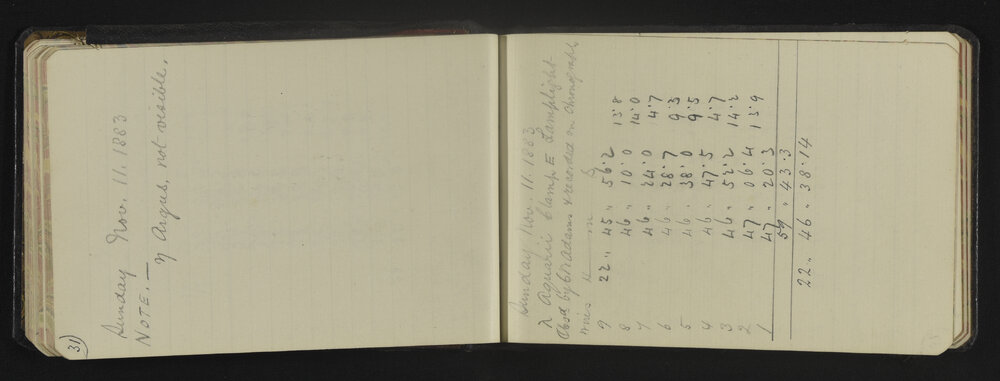 31
Sunday Nov. 11. 1883
NOTE.—
η Argus, not visible.
Sunday Nov. 11. 1883
λ Aquarii Clamp E Lamplight
Obsd by Adams & recorded on Chronograph
Wires H m s
9 22 .. 45 .. 56.2 13.8
8 46 .. 10.0 14.0
7 46 .. 24.0 4.7
6 46 .. 28.7 9.3
5 46 .. 38.0 9.5
4 46 .. 47.5 4.7
3 46 .. 52.2 14.2
2 47 .. 06.4 13.9
1 47 .. 20.3
59 .. 43.3
22 .. 46 .. 38.14